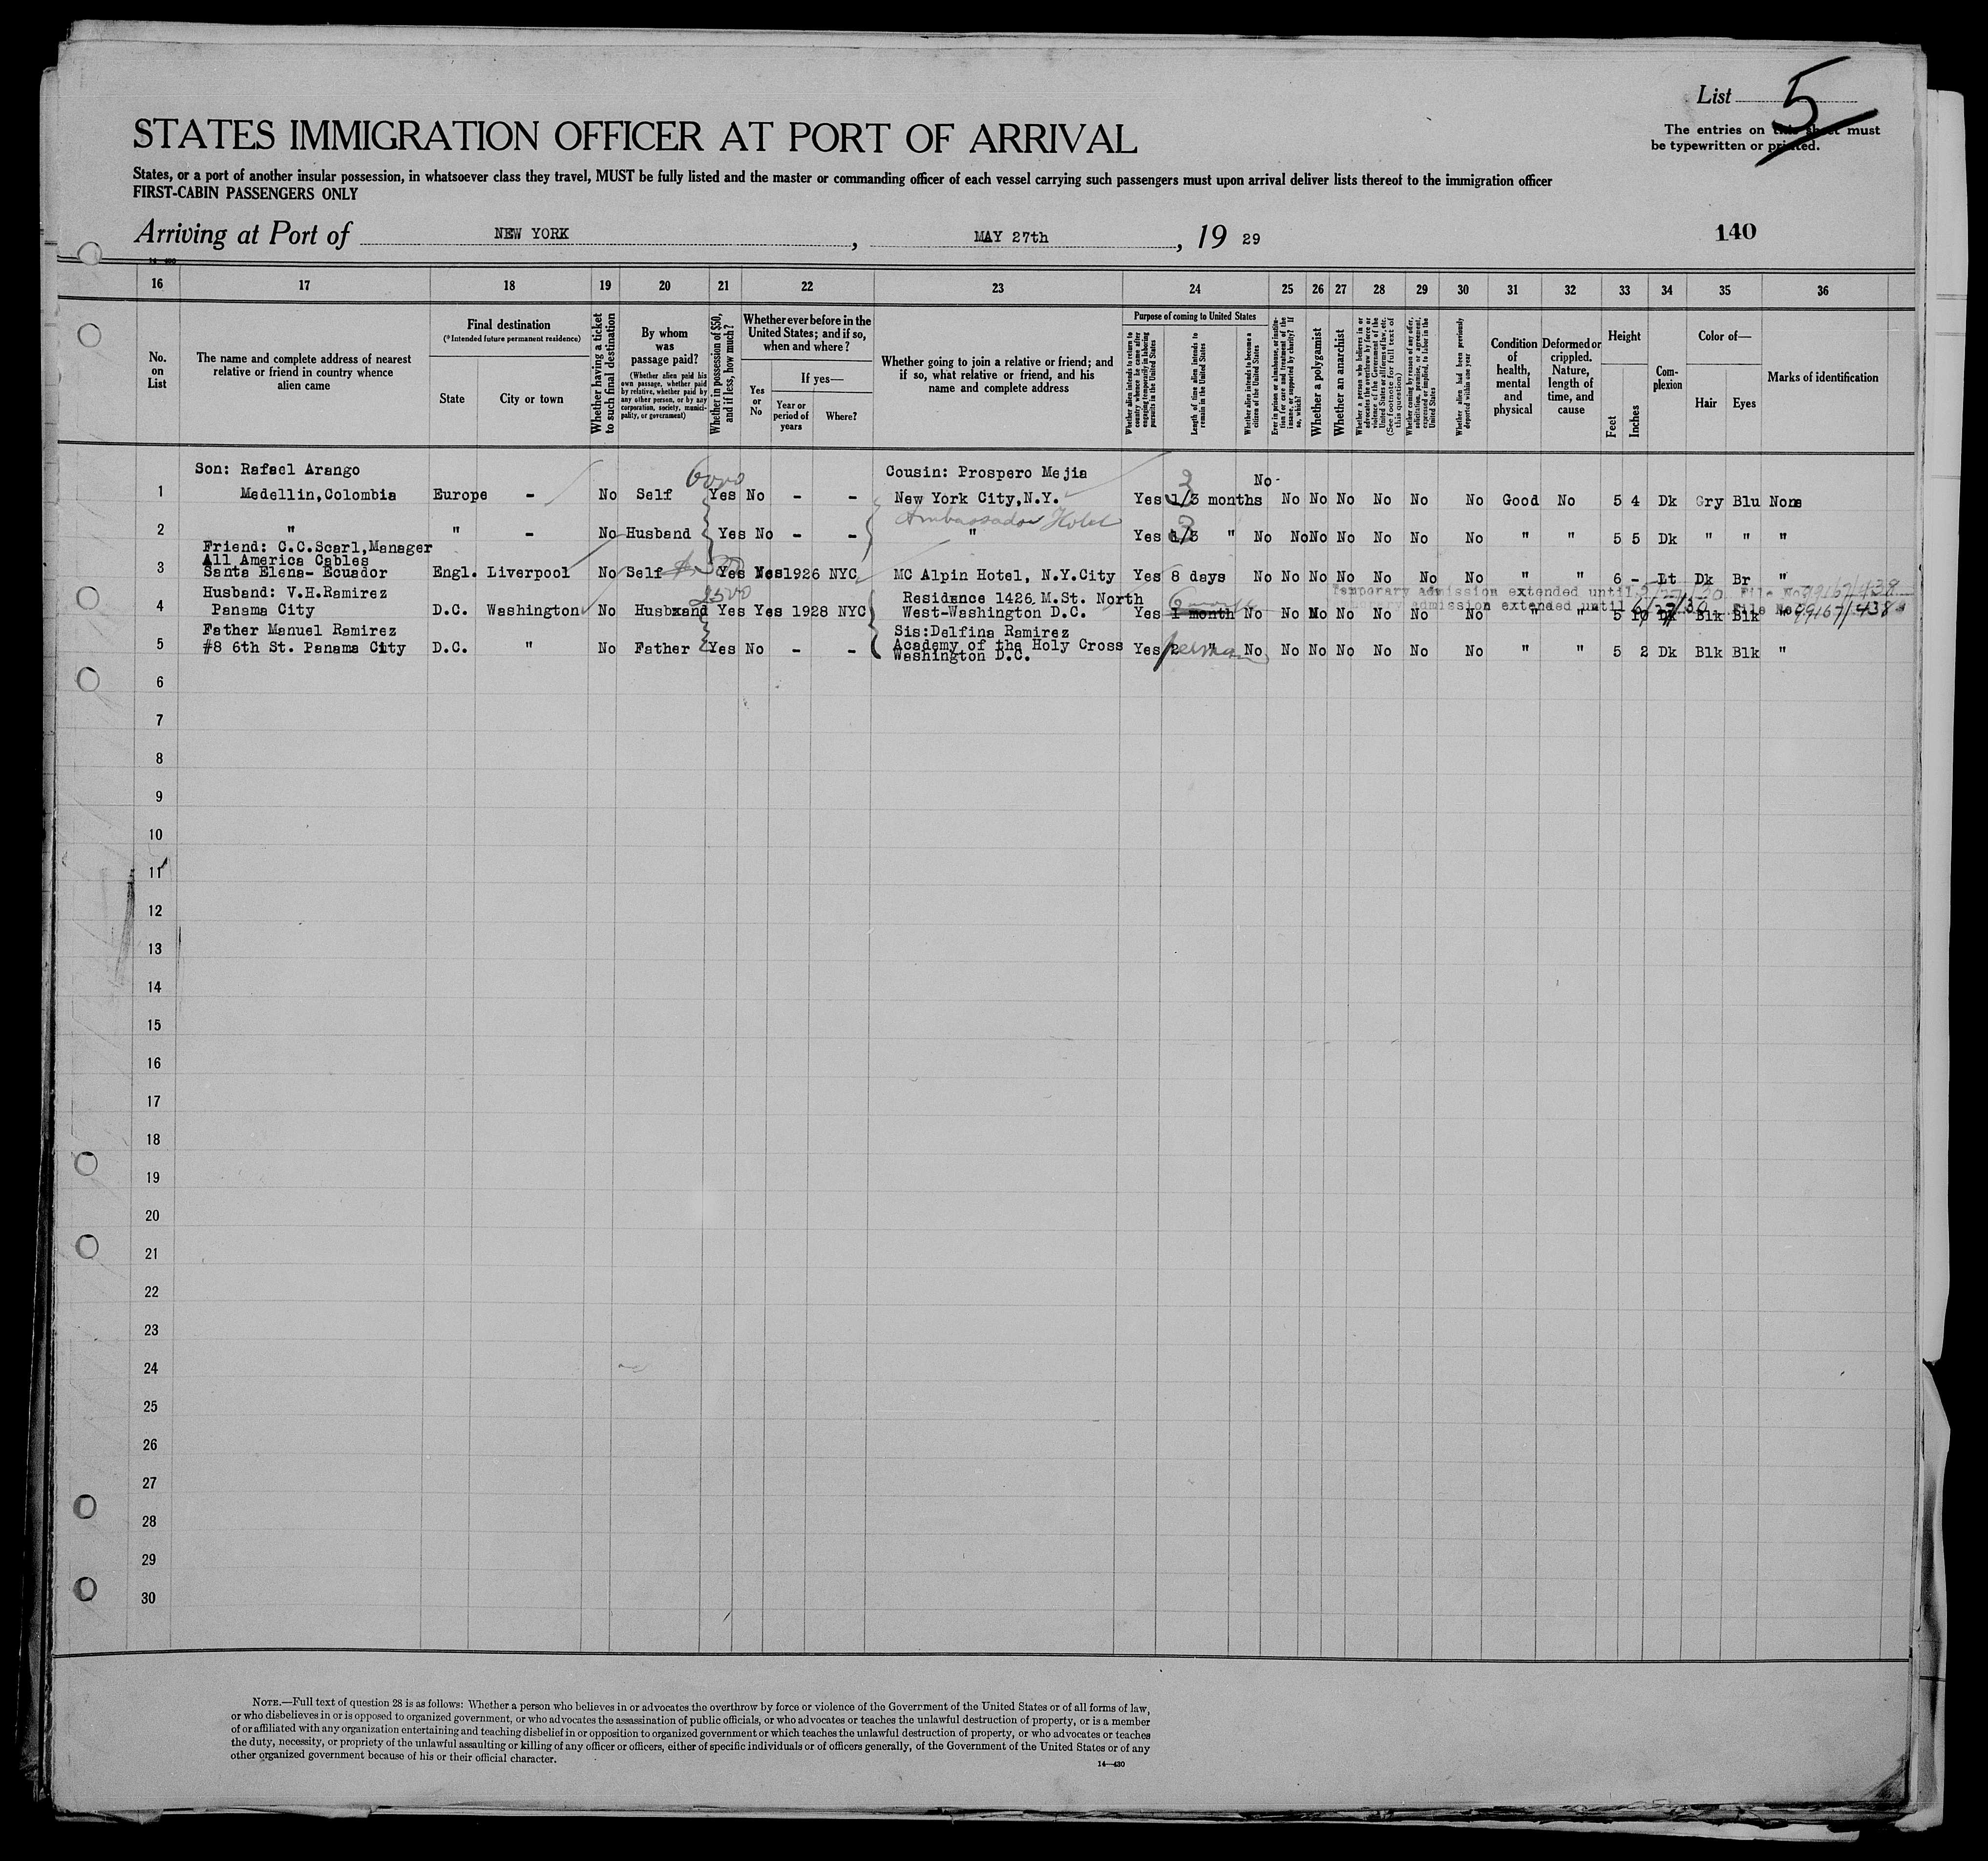 List 5
The entries on this sheet must
be typewritten or printed.
STATES IMMIGRATION OFFICER AT PORT OF ARRIVAL
States, or a port of another insular possession, in whatsoever class they travel, MUST be fully listed and the master or commanding officer of each vessel carrying such passengers must upon arrival deliver lists thereof to the immigration officer
FIRST-CABIN PASSENGERS ONLY
Arriving at Port of NEW YORK, MAY 27th, 19 29
140
16 17 18 19 20 21 22 23 24 25 26 27 28 29 30 31 32 33 34 35 36
No. on List
The name and complete address of nearest relative or friend in country whence alien came
Final destination
(*Intended future permanent residence)
State
City or town
Whether having a ticket to such final destination
By whom was passage paid?
(Whether alien paid his own passage, whether paid by relative, whether paid by any other person, or by any corporation, society, municipality, or government)
Whether in possession of $50, and if less, how much?
Whether ever before in the United States; and if so, when and where?
Yes or No
If yes—
Year or period of years
Where?
Whether going to join a relative or friend; and if so, what relative or friend, and his name and complete address
Purpose of coming to United States
Whether alien intends to return to country whence he came after engaging temporarily in laboring pursuits in the United States
Length of time alien intends to remain in the United States
Whether alien intends to become a citizen of the United States
Ever in prison or almshouse, or institution for care and treatment of the insane, or supported by charity? If so, which?
Whether a polygamist
Whether an anarchist
Whether a person who believes in or advocates the overthrow by force or violence of the Government of the United States or all forms of law, etc. (See footnote for full text of this question)
Whether coming by reason of any offer, solicitation, promise, or agreement, expressed or implied, to labor in the United States
Whether alien had been previously deported within one year
Condition of health, mental and physical
Deformed or crippled. Nature, length of time, and cause
Height
Feet
Inches
Complexion
Color of—
Hair
Eyes
Marks of identification
Son: Rafael Arango 6000 Cousin: Prospero Mejia 3 No-
1 Medellin,Colombia Europe - No Self Yes No - - New York City,N.Y. Yes 1/3 months No No No No No No Good No 5 4 Dk Gry Blu None
Ambassador Hotel 3
2 " " - No Husband Yes No - - " Yes 1/3 " No No No No No No No " " 5 5 Dk " " "
Friend: C.C.Scarl,Manager
All America Cables
3 Santa Elena- Ecuador Engl. Liverpool No Self Yes Yes 1926 NYC MC Alpin Hotel, N.Y.City Yes 8 days No No No No No No No " " 6 - Lt Dk Br "
Temporary admission extended until 5/27/30 File No 99167/438
Husband: V.H.Ramirez 2500 Residence 1426 M.St. North 6 months
admission extended until 6/27/30 File No 99167/438
4 Panama City D.C. Washington No Husband Yes Yes 1928 NYC West-Washington D.C. Yes 1 month No No No No No No No " " 5 10 Dk Blk Blk "
Father Manuel Ramirez Sis:Delfina Ramirez
5 #8 6th St. Panama City D.C. " No Father Yes No - - Academy of the Holy Cross Yes 2 " No No No No No No No " " 5 2 Dk Blk Blk "
Washington D.C.
6
7
8
9
10
11
12
13
14
15
16
17
18
19
20
21
22
23
24
25
26
27
28
29
30
NOTE.—Full text of question 28 is as follows: Whether a person who believes in or advocates the overthrow by force or violence of the Government of the United States or of all forms of law,
or who disbelieves in or is opposed to organized government, or who advocates the assassination of public officials, or who advocates or teaches the unlawful destruction of property, or is a member
of or affiliated with any organization entertaining and teaching disbelief in or opposition to organized government or which teaches the unlawful destruction of property, or who advocates or teaches
the duty, necessity, or propriety of the unlawful assaulting or killing of any officer or officers, either of specific individuals or of officers generally, of the Government of the United States or of any
other organized government because of his or their official character.
14—430